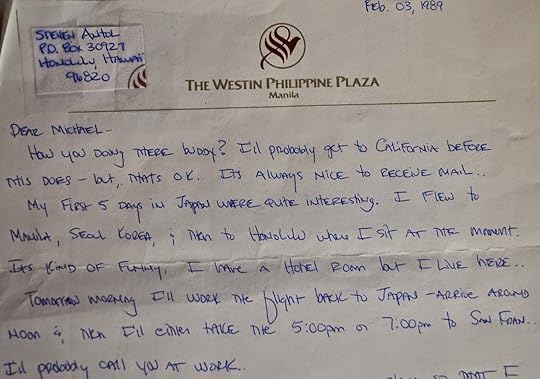 Feb. 03, 1989
STEVEN ANTOL
P.O. BOX 30927
HONOLULU, HAWAII
96820
THE WESTIN PHILIPPINE PLAZA
Manila
DEAR MICHAEL-
HOW YOU DOING THERE BUDDY? I'll probably get to CALIFORNIA BEFORE
THIS DOES - but,, THATS OK. ITS ALWAYS NICE TO RECEIVE MAIL..
My FIRST 5 DAYS IN JAPAN WERE QUITE INTERESTING. I FLEW to
MANILA, SEOUL KOREA, & THEN to HONOLULU where I SIT AT THE MOMENT.
ITS KIND OF FUNNY, I HAVE A HOTEL ROOM but I LIVE HERE..
Tomorrow morning I'll WORK THE flight BACK to JAPAN - ARRIVE AROUND
NOON & THEN I'll EITHER TAKE THE 5:00pm or 7:00pm to SAN FRAN..
I'll probably CALL YOU AT WORK..
so THAT I